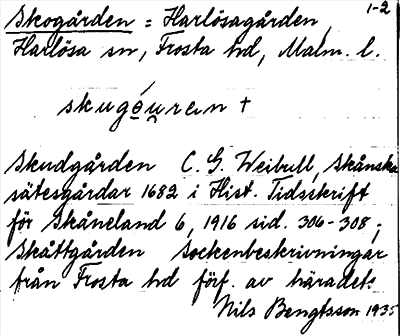 Skogården = Harlösagården, 1-2
Harlösa sn, Frosta hd, Malm. l.
skugǫ́u̯ren +
Skudgården C. G. Weibull, Skånska
sätesgårdar 1682 i Hist. Tidsskrift
för Skåneland 6, 1916 sid. 306-308;
Skåttgården Sockenbeskrivningar
från Frosta hd förf. av häradets
Nils Bengtsson 1935